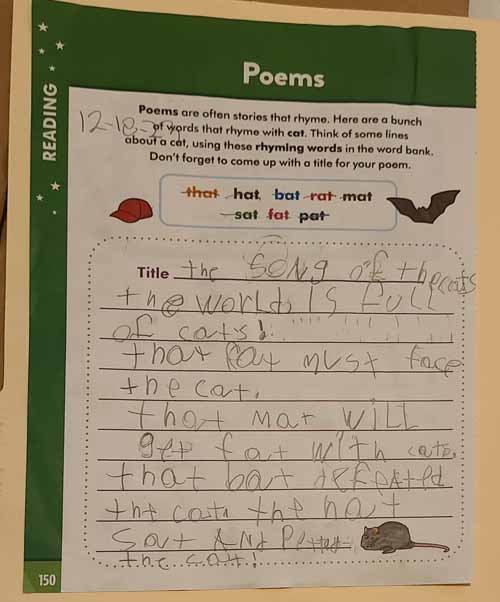 READING
Poems
12-18-23
Poems are often stories that rhyme. Here are a bunch
of words that rhyme with cat. Think of some lines
about a cat, using these rhyming words in the word bank.
Don't forget to come up with a title for your poem.
that hat bat rat mat
sat fat pat
Title the SONG of the cats
the world IS full
of cats!
that rat must face
the cat.
that mat will
get fat with cats.
that bat defeated
the cat the hat
Sat ANd
the cat!
150